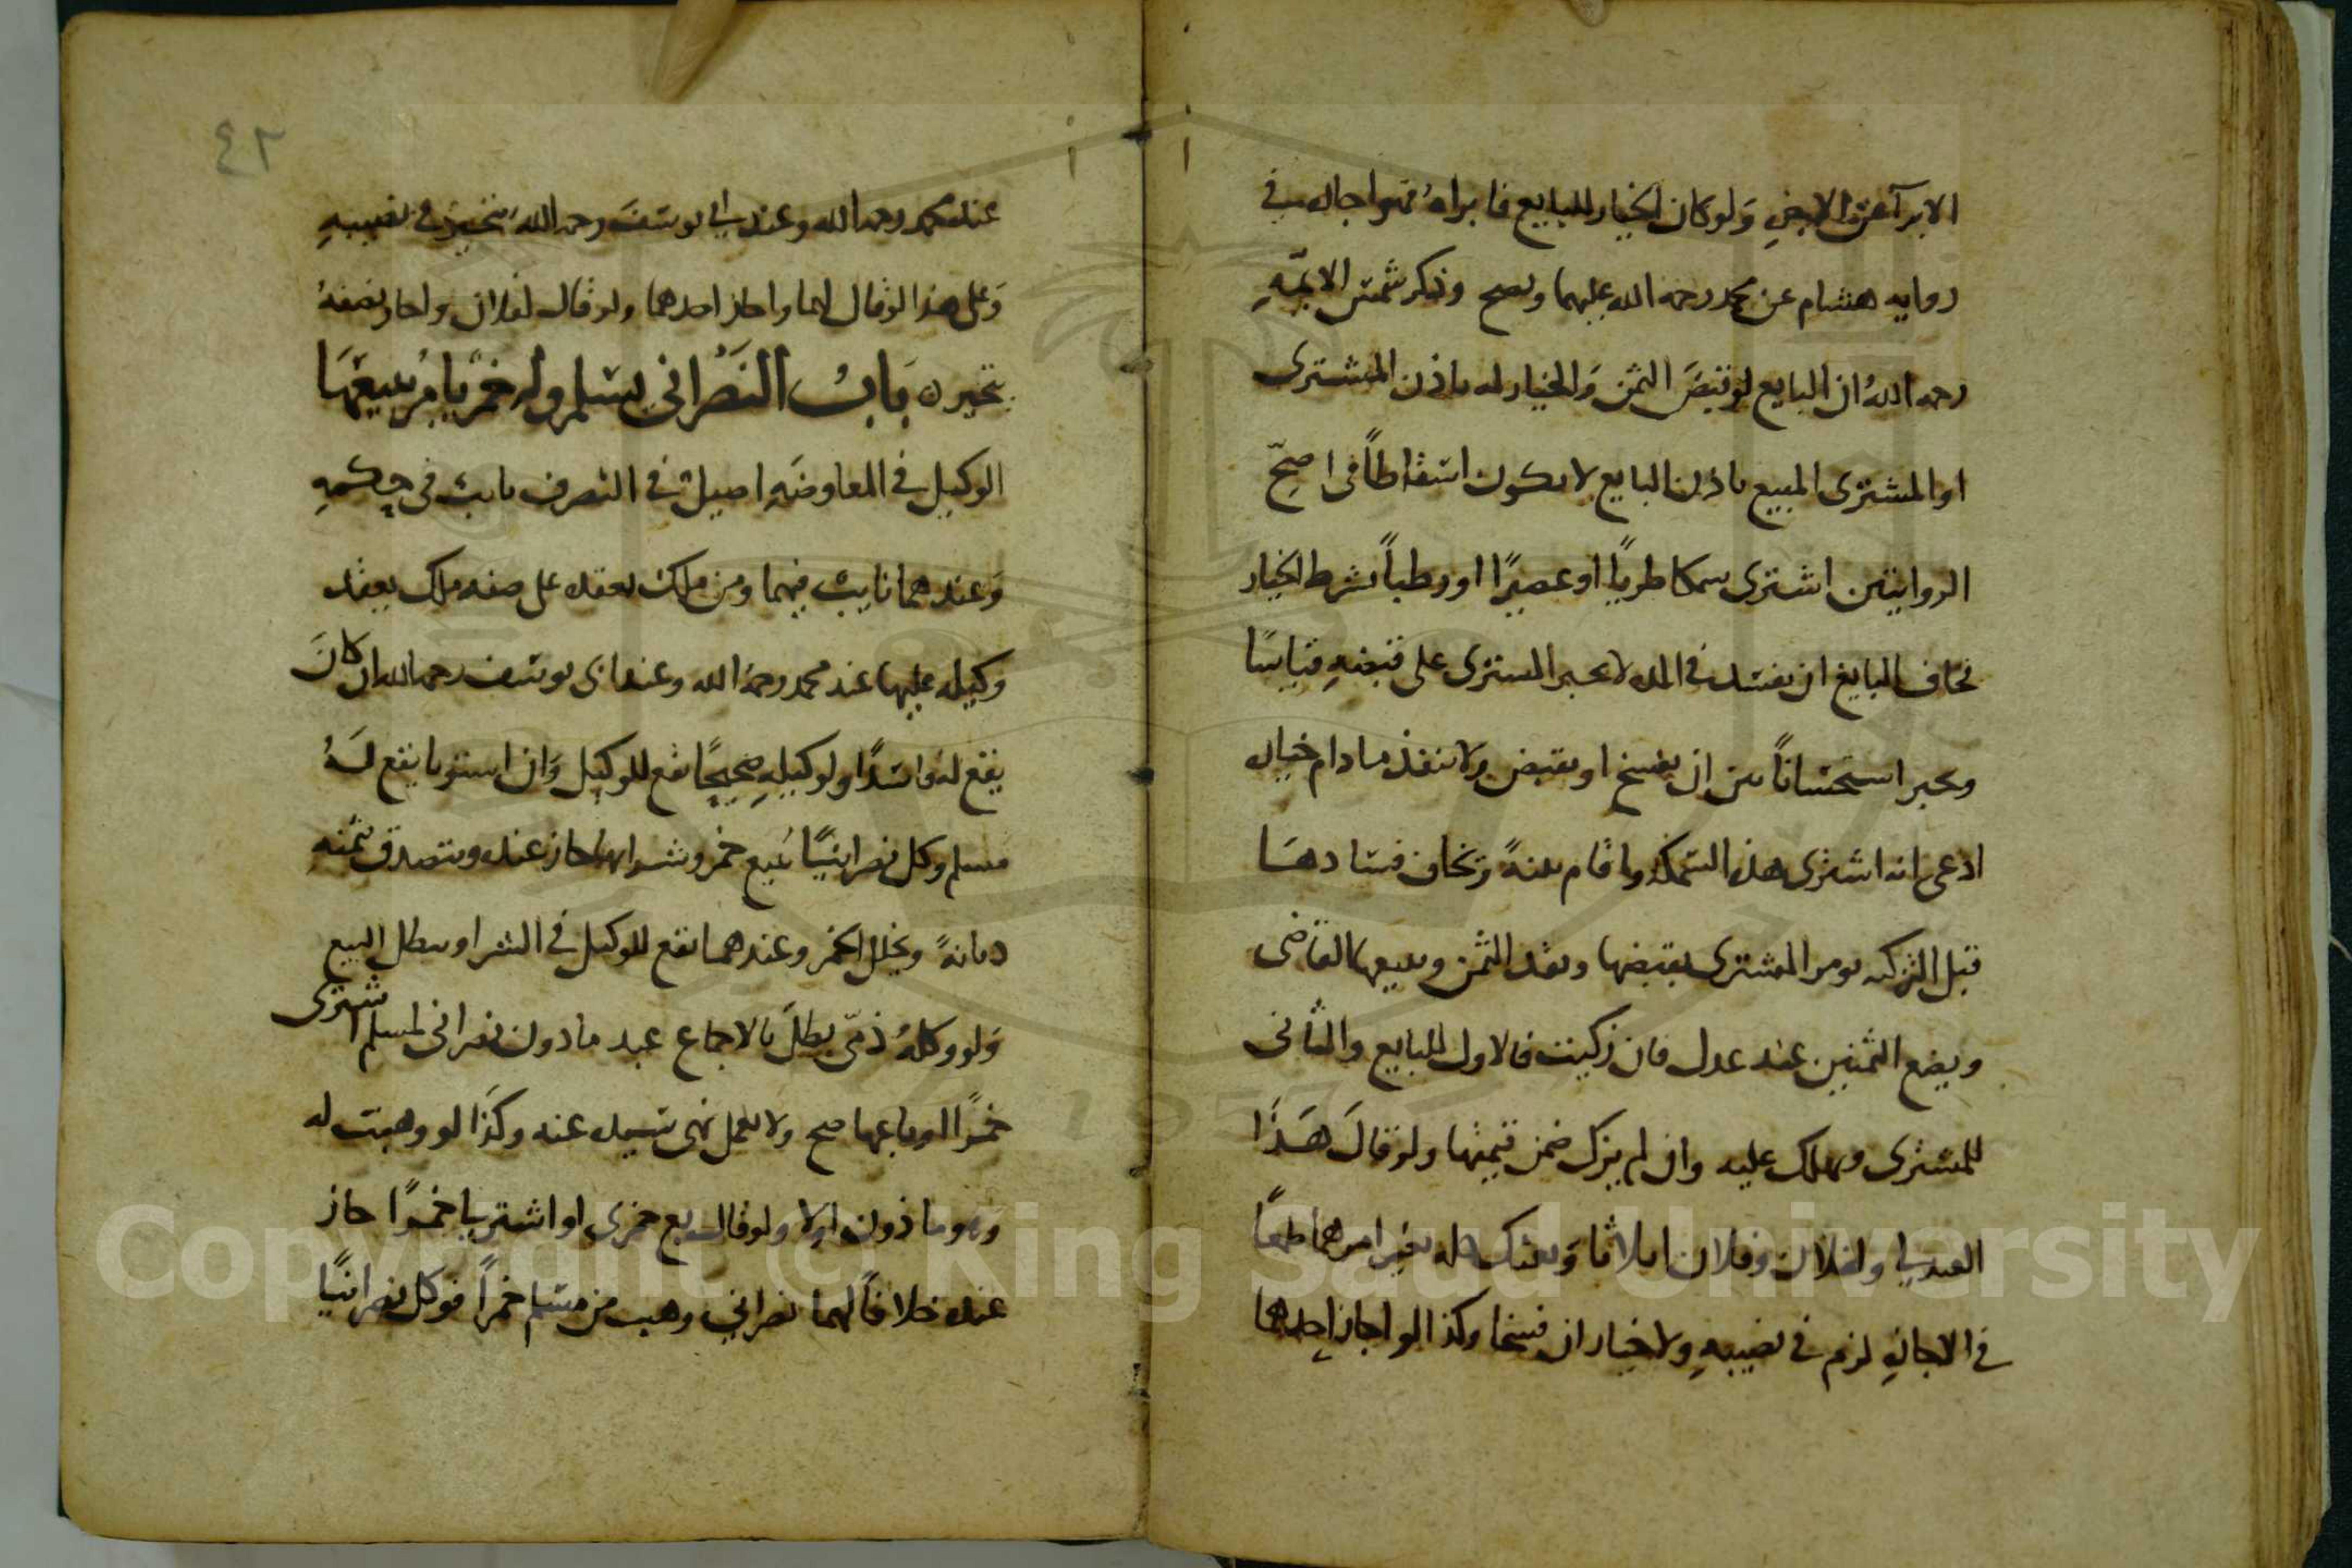 الابرآ عن الاجنبي ولو كان الخيار للبايع فابراه فهو اجازه في
روايه هشام عن محمد رحمه الله عليهما ويصح وذكر شمس الايمّه
رحمه الله ان البايع لو قبض الثمن والخيار له باذن المشترى
او المشترى المبيع باذن البايع لا يكون اسقاطاً فى اصحّ
الروايتين اشترى سمكا طريًا او عصيرًا او رطباً بشرط الخيار
فخاف البايع ان يفسد في المده لا يجبر المشترى على قبضه قياسًا
ويجبر استحساناً بين ان يفسخ او يقبض ولا ينقد ما دام خياره
ادعى انه اشترى هذه السمكه واقام بينةً وتخاف فسادها
قبل التزكيه يومر المشترى بقبضها ونقد الثمن ويبيعها القاضى
ويضع الثمنين عند عدل فان زكيت فالاول للبايع والثانى
للمشترى ويهلك عليه وان لم يزك ضمن قيمتها ولو قال هَذا
العبد لي ولفلان وفلان اثلاثا وبعتك كله بغير امرهما طمعاً
في الاجازه لزم في نصيبه ولا خيار ان فسخا وكذا لو اجاز احدهما
٤٢
عند محمد رحمه الله وعند ابي يوسف رحمه الله يتخير في نصيبه
وعلى هذا لو قال لهما واجاز احدهما ولو قال لفلان واجاز نصفه
يتخير ه باب النصراني يسلم وله خمر يامر ببيعها
الوكيل في المعاوضه اصيل في التصرف نايب في حكمه
وعندهما نايب فيهما ومن ملك بعقده على صفه ملك بعقد
وكيله عليها عند محمد رحمه الله وعند ابى يوسف رحمه الله ان كان
يقع له فاسدًا ولوكيله صحيحًا يقع للوكيل وان استويا يقع له
مسلم وكل نصرانيًا ببيع خمر وشرايها جاز عنده ويتصدق بثمنه
ديانةً ويخلل الخمر وعندهما يقع للوكيل في الشرا ويبطل البيع
ولو وكله ذمّي بطل بالاجماع عبد ماذون نصرانى لمسلم اشترى
خمرًا او باعها صح ولا يعمل نهى سيده عنه وكذا لو وهبت له
وهو ماذون اولا ولو قال بع خمرى او اشتر لي خمرًا جاز
عنده خلافاً لهما نصراني وهب من مسلم خمراً فوكل نصرانيًا
Copyright © King Saud University